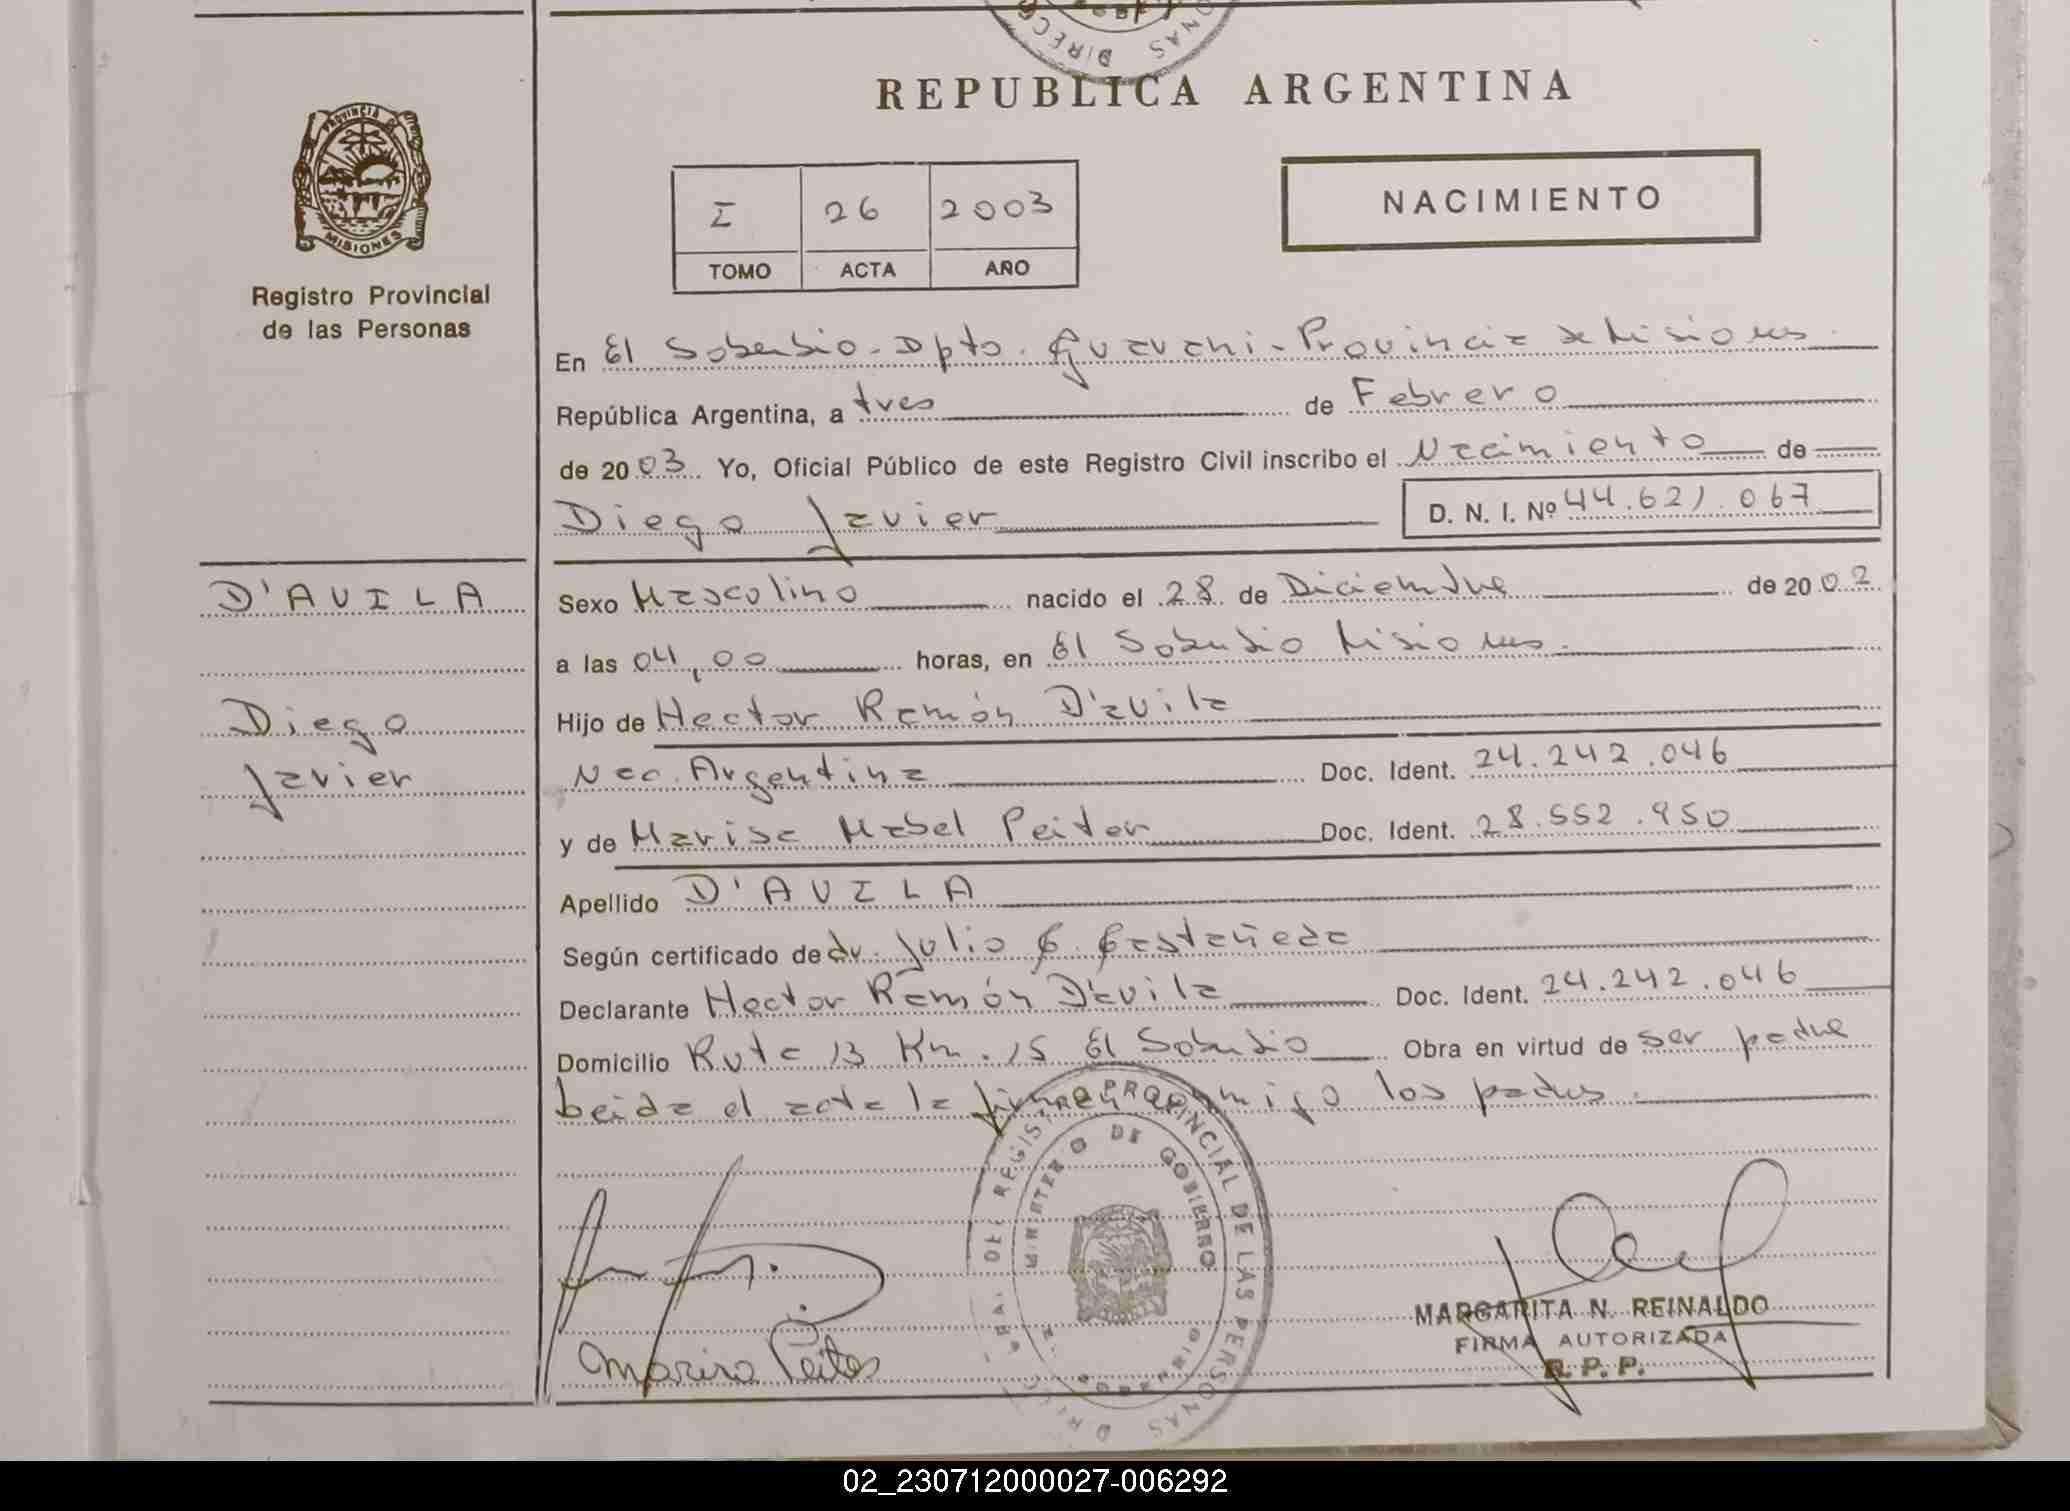 REPUBLICA ARGENTINA
PROVINCIA DE
MISIONES
Registro Provincial
de las Personas
I 26 2003
TOMO ACTA AÑO
NACIMIENTO
En El Soberbio - Dpto. Guarani - Provincia de Misiones.
República Argentina, a tres de Febrero
de 2003. Yo, Oficial Público de este Registro Civil inscribo el Nacimiento de
Diego Javier D. N. I. Nº 44.621.067
D'AVILA
Diego
Javier
Sexo Masculino nacido el 28 de Diciembre de 2002
a las 04,00 horas, en El Soberbio Misiones.
Hijo de Hector Ramón D'avila
Nac. Argentina Doc. Ident. 24.242.046
y de Marisa Mabel Peiter Doc. Ident. 28.552.950
Apellido D'AVILA
Según certificado de dr. Julio C. Castañeda
Declarante Hector Ramón D'avila Doc. Ident. 24.242.046
Domicilio Ruta 13 Km. 15 El Soberbio Obra en virtud de ser padre
leida el acta la firman conmigo los padres.
REGISTRO PROVINCIAL DE LAS PERSONAS
MINISTERIO DE GOBIERNO
Marisa Peiter
MARGARITA N. REINALDO
FIRMA AUTORIZADA
R. P. P.
02_230712000027-006292